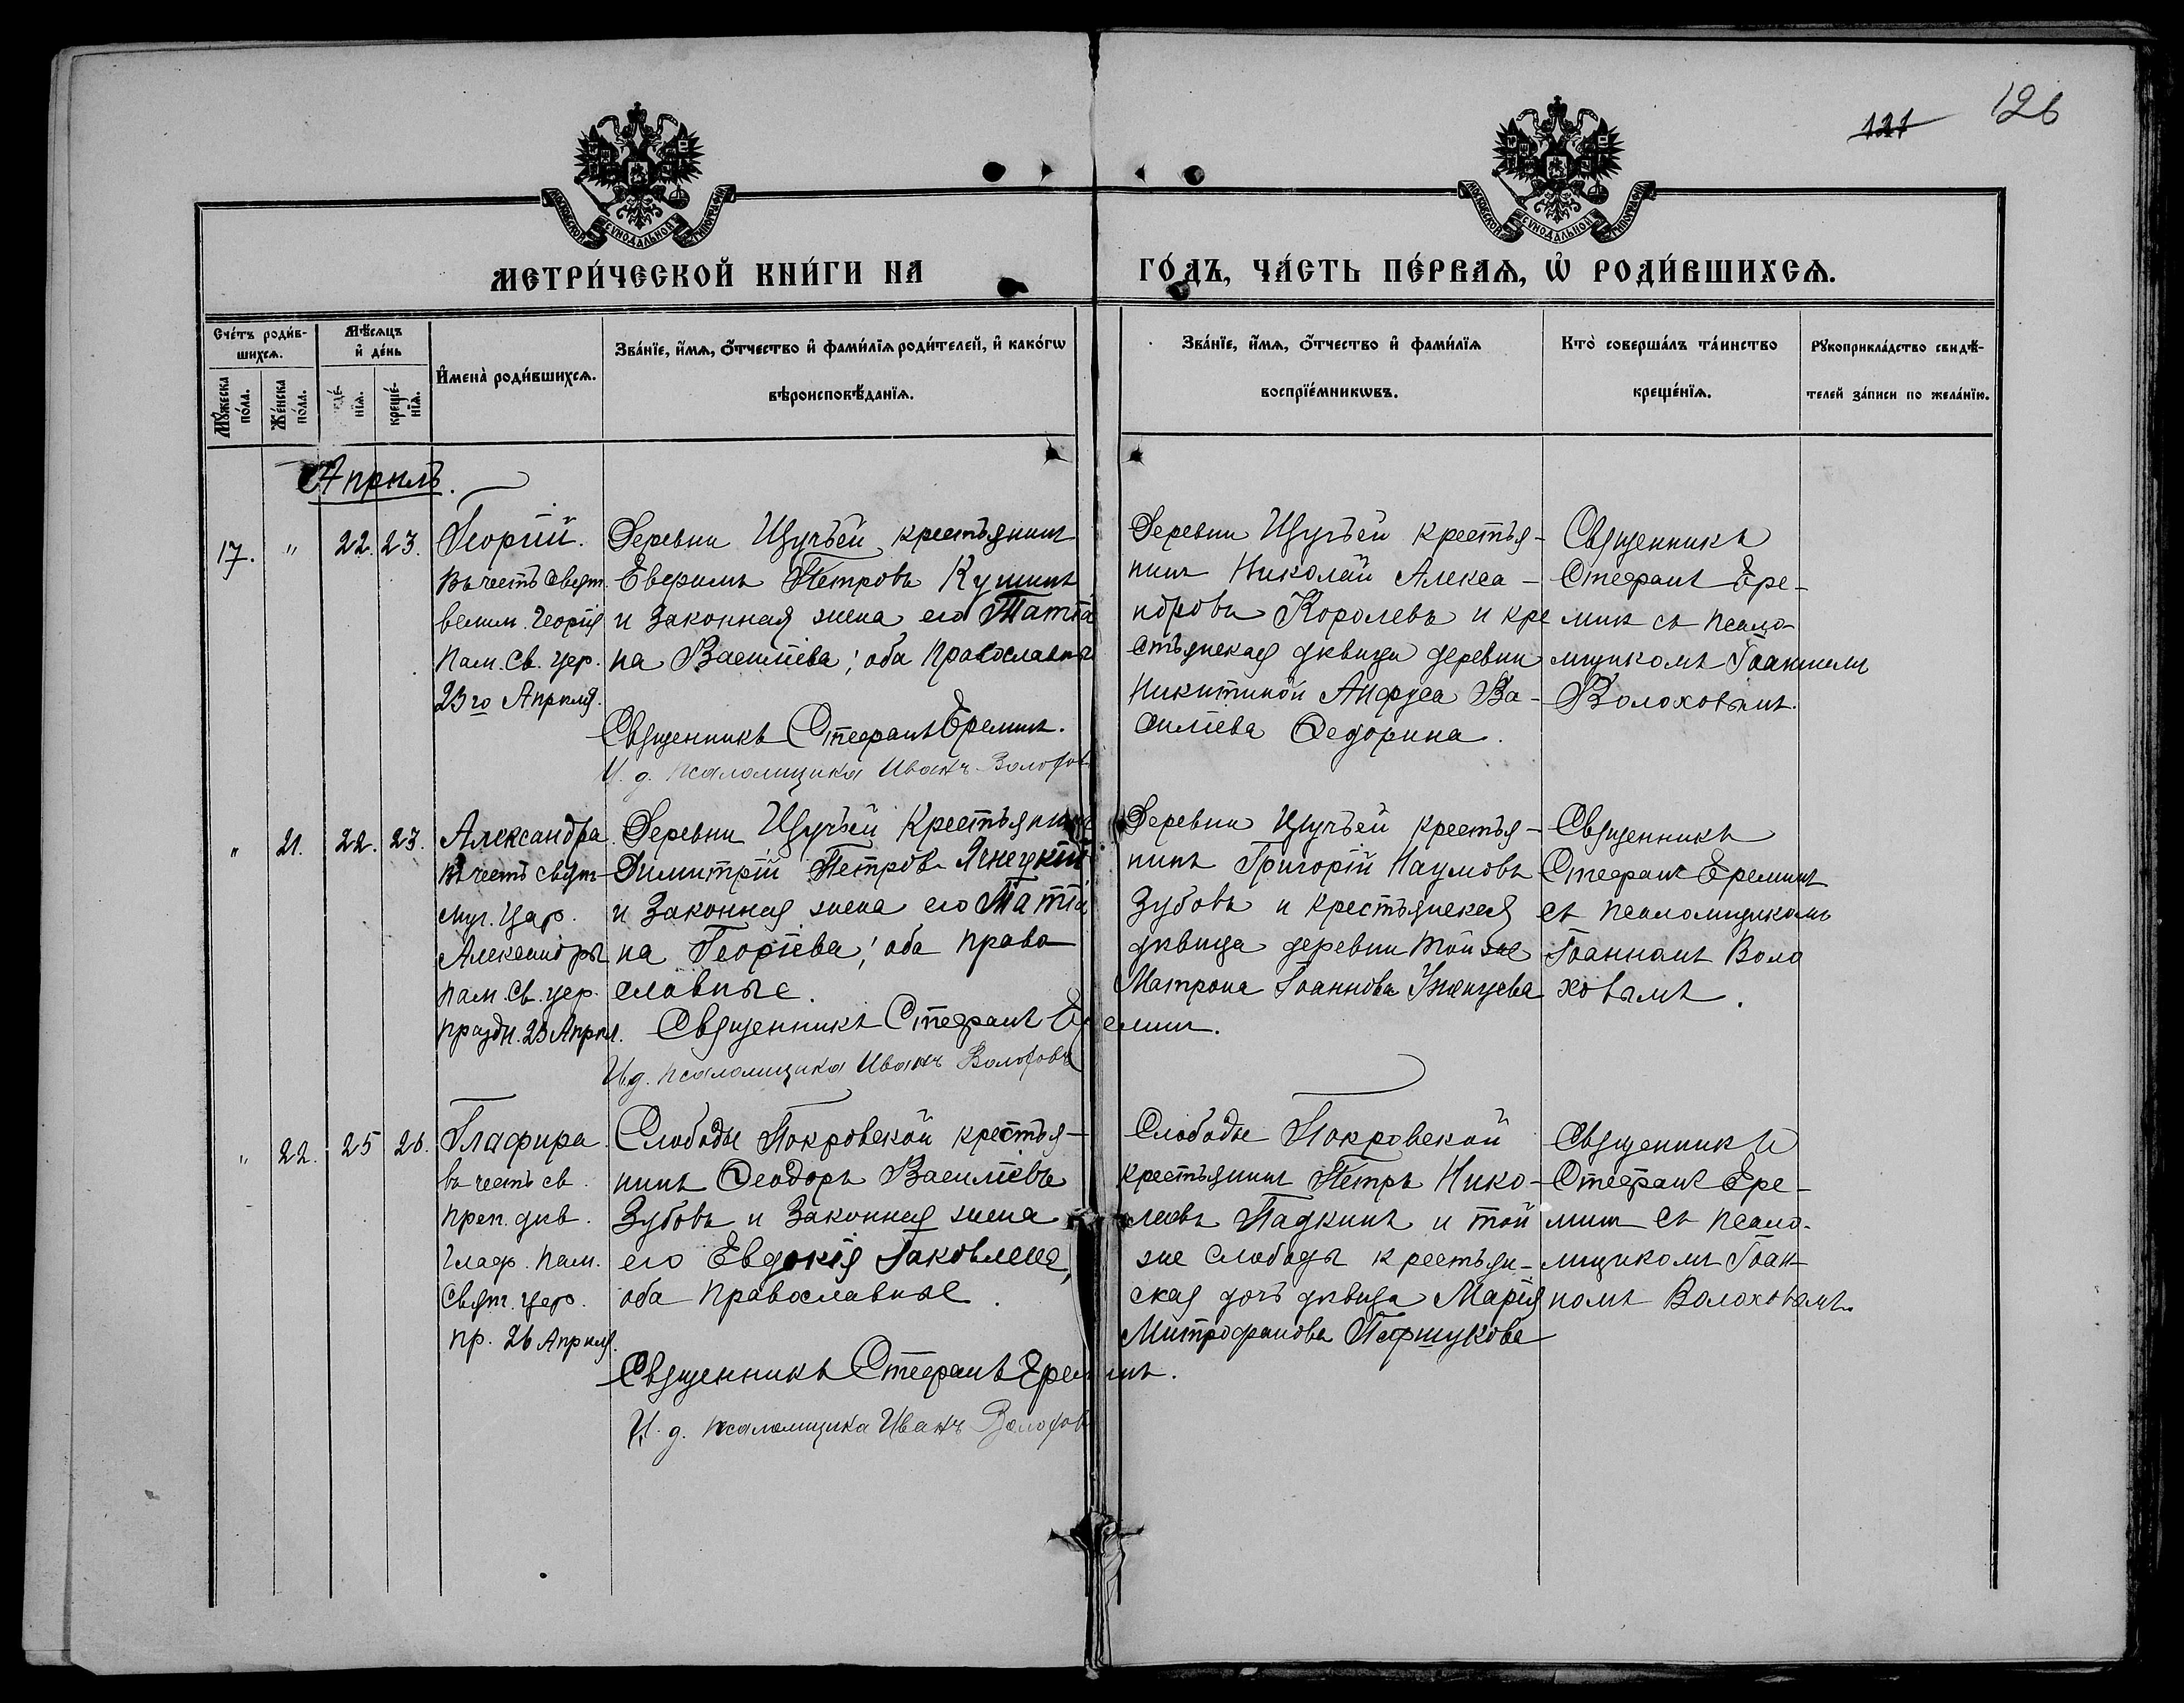 126
121
МОСКОВСКОЙ СѴНОДАЛЬНОЙ ТИПОГРАФІИ
МОСКОВСКОЙ СѴНОДАЛЬНОЙ ТИПОГРАФІИ
МЕТРИ́ЧЕСКОЙ КНИ́ГИ НА
ГО́ДЪ, ЧА́СТЬ ПЕ́РВАѦ, Ѡ҆ РОДИ́ВШИХСѦ.
Сче́тъ роди́в-
шихсѧ.
Мѣ́сѧцъ
и҆ де́нь
Мꙋ́жеска
по́ла.
Же́нска
по́ла.
нїѧ.
креще́-
нїѧ.
И҆мена̀ роди́вшихсѧ.
Зва́нїе, и҆́мѧ, ѻ҆́тчество и҆ фами́лїѧ роди́телей, и҆ како́гѡ
вѣроисповѣ́данїѧ.
Зва́нїе, и҆́мѧ, ѻ҆́тчество и҆ фами́лїѧ
воспрїе́мникѡвъ.
Кто̀ соверша́лъ та́инство
креще́нїѧ.
Рꙋкоприкла́дство свидѣ́-
телей за́писи по жела́нїю.
Апрѣль.
17. " 22. 23.
Георгій.
Въ честь свят.
велим. Георгія
пам. Св. цер.
23го Апрѣля.
Деревни Щучьей крестьянинъ
Евѳимъ Петровъ Кушинъ
и законная жена его Татіа
на Василіева; оба православные
Священникъ Стефанъ Ереминъ.
И. д. псаломщика Иванъ Волохов
Деревни Щучьей крестья-
нинъ Николай Алекса-
ндровъ Королевъ и кре
стьянская дѣвица деревни
Никитиной Анфуса Ва-
силіева Федорина.
Священникъ
Стефанъ Ере-
минъ съ псало-
мщикомъ Іоанномъ
Волоховымъ.
" 21. 22. 23.
Александра
въ честь свят
муч. Цар.
Александры
пам. Св. цер.
праздн. 23 Апрѣл.
Деревни Щучьей крестьянинъ
Димитрій Петров Ягнецкій
и законная жена его Татіа
на Георгіева; оба право
славные.
Священникъ Стефанъ Ереминъ.
И.д. псаломщика Иванъ Волоховъ
Деревни Щучьей крестья-
нинъ Григорій Наумовъ
Зубовъ и крестьянская
дѣвица деревни той же
Матрона Іоаннова
Священникъ
Стефанъ Ереминъ
съ псаломщикомъ
Іоанномъ Воло
ховымъ.
" 22. 25 26.
Глафира
въ честь св.
преп. дѣв.
Глаф. пам.
Свят. цер.
пр. 26 Апрѣля.
Слободы Покровской крестья-
нинъ Феодоръ Василіевъ
Зубовъ и законная жена
его Евдокія Іаковлева,
оба православные.
Священникъ Стефанъ Ереминъ.
И. д. псаломщика Иванъ Волохов
Слободы Покровской
крестьянинъ Петръ Нико-
лаевъ Падкинъ и той
же слободы крестьян-
ская дочь дѣвица Марія
Митрофанова Паршукова
Священникъ
Стефанъ Ере-
минъ съ псало-
мщикомъ Іоан-
номъ Волоховымъ.